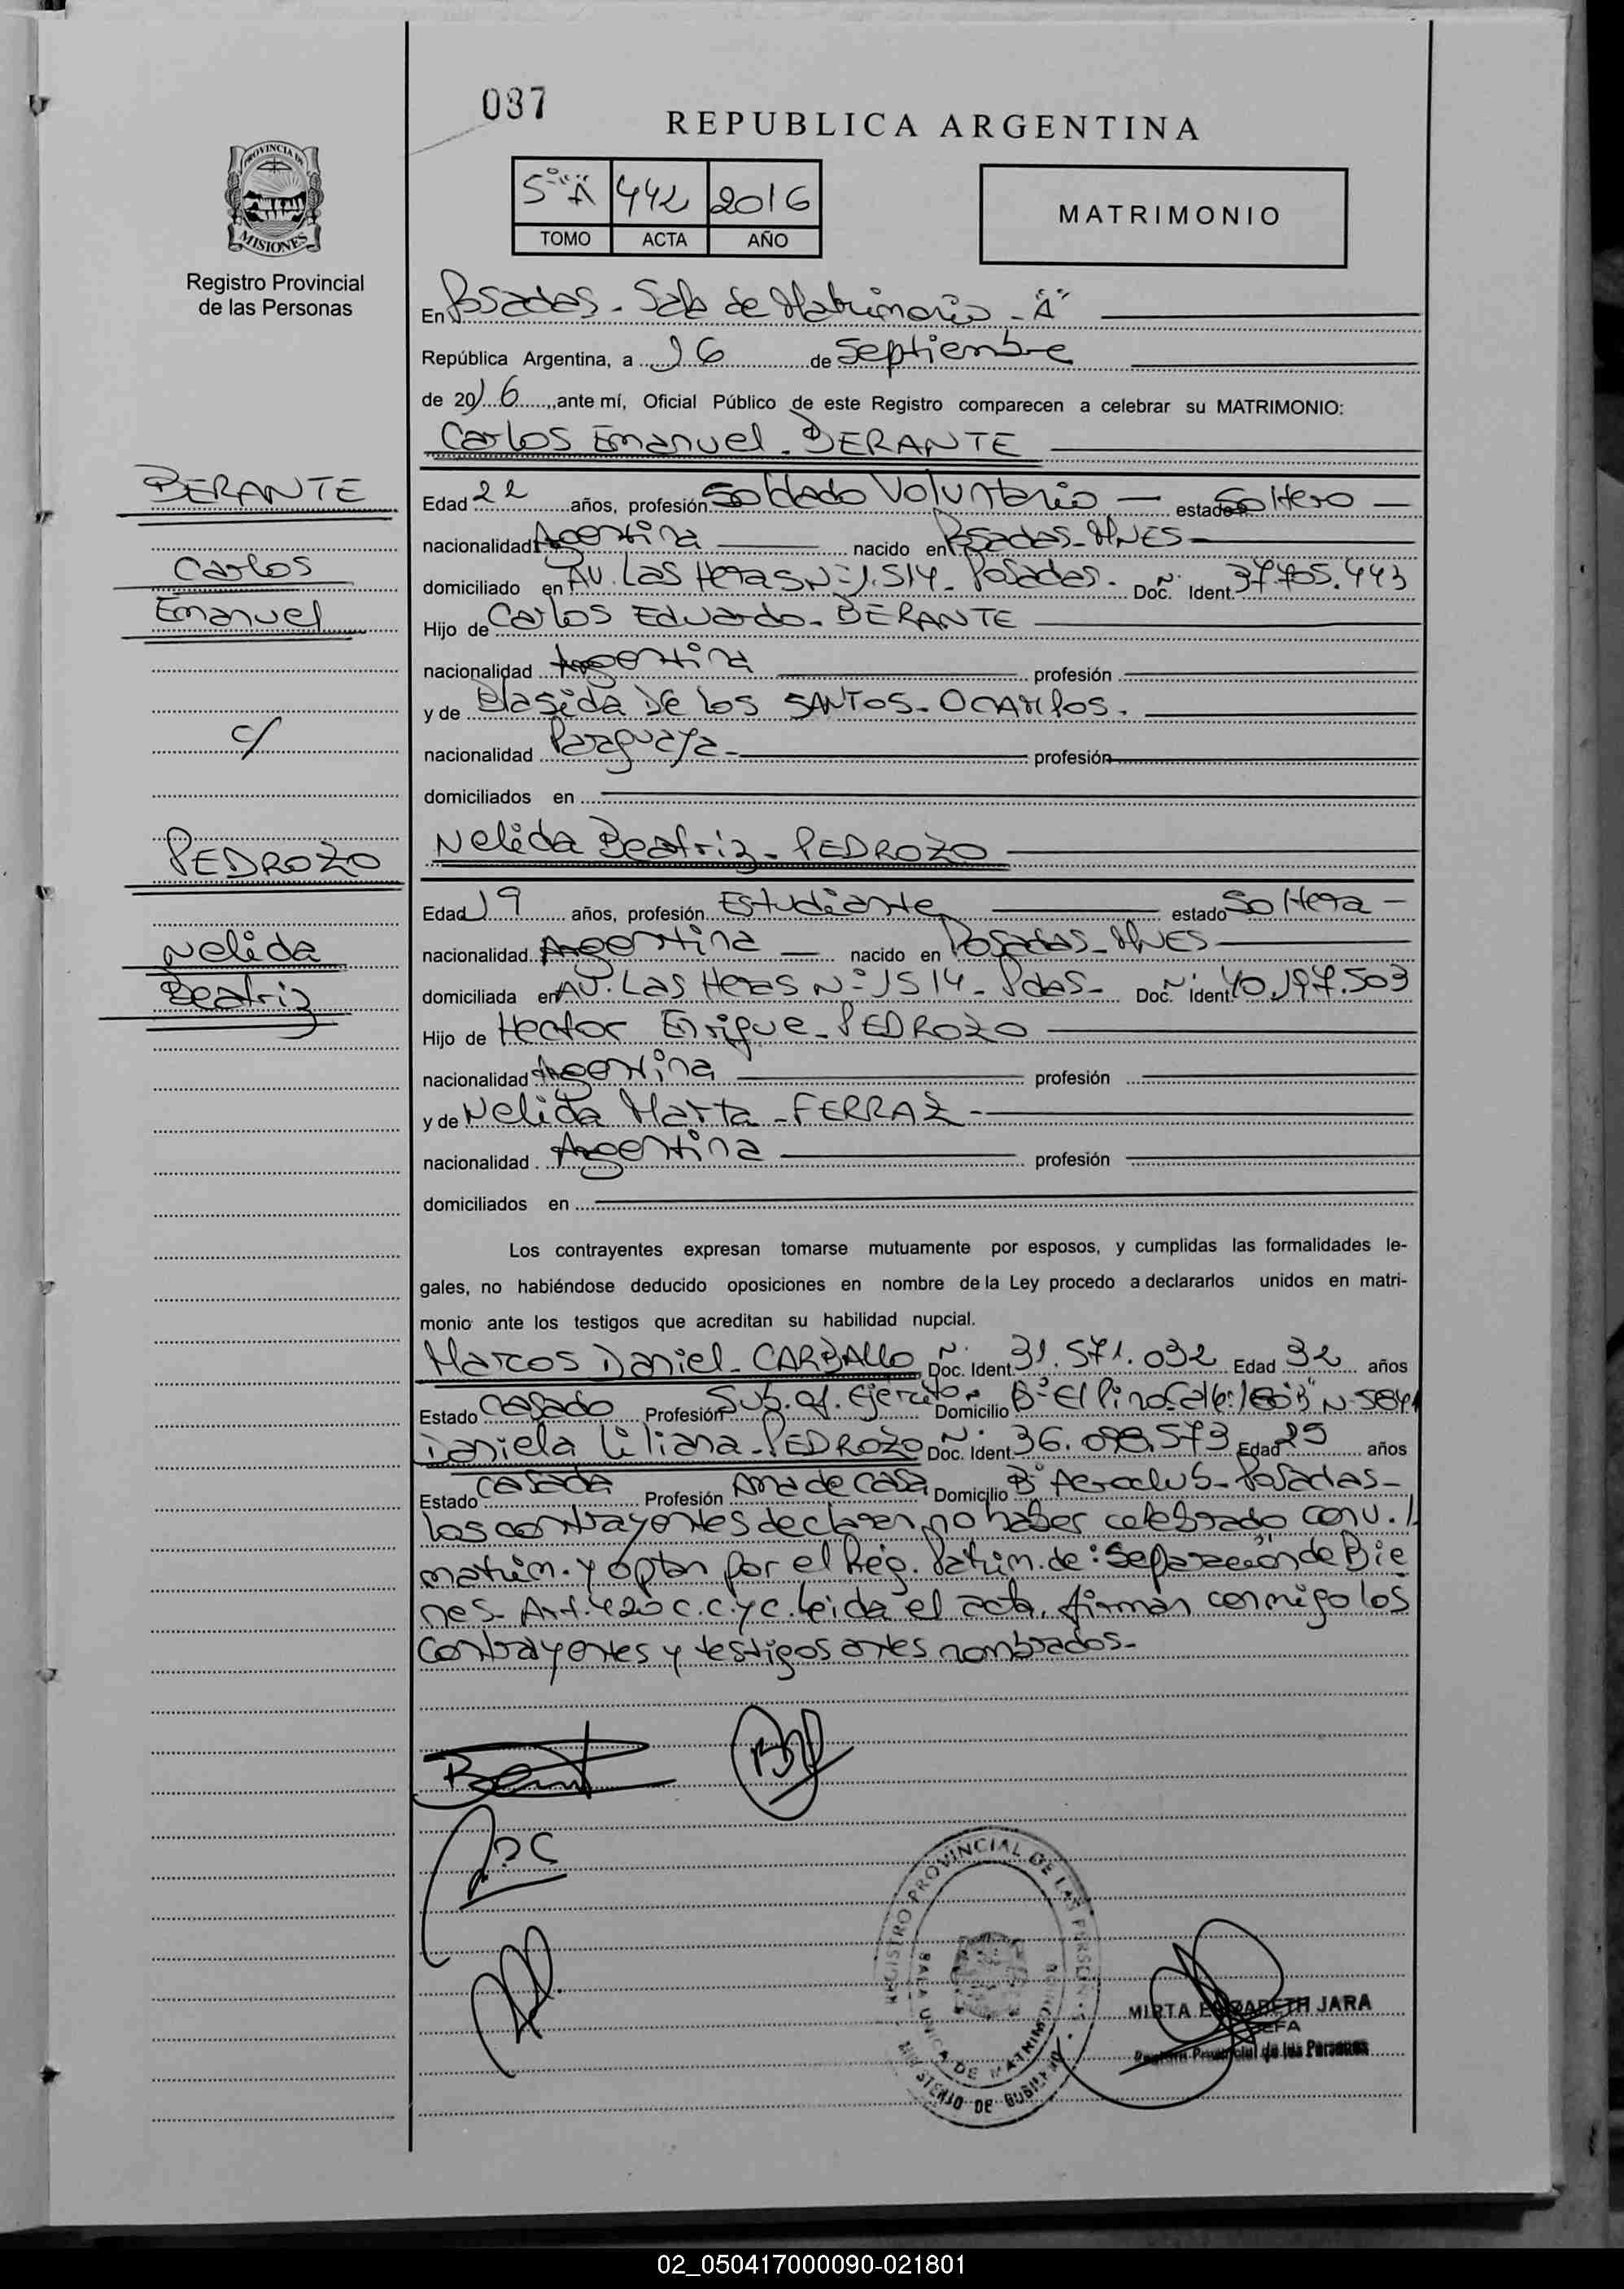 037
REPUBLICA ARGENTINA
PROVINCIA DE
MISIONES
Registro Provincial
de las Personas
5° "A" 442 2016
TOMO ACTA AÑO
MATRIMONIO
En Posadas - Sala de Matrimonio - "A"
República Argentina, a 16 de Septiembre
de 2016, ante mí, Oficial Público de este Registro comparecen a celebrar su MATRIMONIO:
Carlos Emanuel - BERANTE
BERANTE
Carlos
Emanuel
c/
PEDROZO
Nelida
Beatriz
Edad 22 años, profesión Soldado Voluntario - estado Soltero -
nacionalidad Argentina nacido en Posadas - MNES -
domiciliado en AV. Las Heras N° 1.514 - Posadas. Doc. N° Ident. 37.705.443
Hijo de Carlos Eduardo - BERANTE
nacionalidad Argentina profesión
y de Blasida De los SANTOS - OCAMPOS.
nacionalidad Paraguaya - profesión
domiciliados en
Nelida Beatriz - PEDROZO
Edad 19 años, profesión Estudiante estado Soltera -
nacionalidad Argentina - nacido en Posadas - MNES
domiciliada en AV. Las Heras N° 1514 - Pdas - Doc. N° Ident. 40.197.503
Hijo de Hector Enrique - PEDROZO
nacionalidad Argentina profesión
y de Nelida Marta - FERRAZ -
nacionalidad Argentina profesión
domiciliados en
Los contrayentes expresan tomarse mutuamente por esposos, y cumplidas las formalidades le-
gales, no habiéndose deducido oposiciones en nombre de la Ley procedo a declararlos unidos en matri-
monio ante los testigos que acreditan su habilidad nupcial.
Marcos Daniel - CARBALLO Doc. N° Ident. 31.571.032 Edad 32 años
Estado Casado Profesión Sub. of. Ejercito - Domicilio B° El Pino
Daniela Liliana - PEDROZO Doc. N° Ident. 36.098.573 Edad 25 años
Estado Casada Profesión Ama de Casa Domicilio B° Aeroclub - Posadas -
Los contrayentes declaran no haber celebrado conv.
matrim. y optan por el Rég. Patrim. de: "Separación de Bie
nes - Art. 420 C.C. y C. leida el acta, firman conmigo los
contrayentes y testigos antes nombrados -
REGISTRO PROVINCIAL DE LAS PERSONAS
SALA UNICA DE MATRIMONIO
MINISTERIO DE GOBIERNO
MIRTA ELIZABETH JARA
JEFA
Registro Provincial de las Personas
02_050417000090-021801